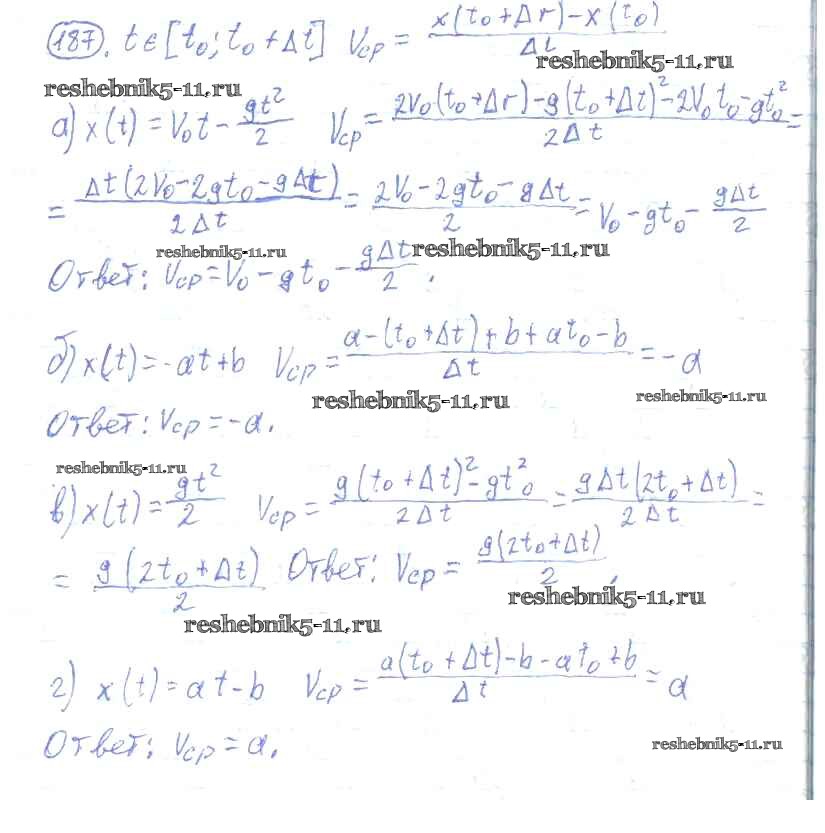 187. t∈[t₀; t₀+Δt] Vср = (x(t₀+Δr)-x(t₀))/Δt
reshebnik5-11.ru reshebnik5-11.ru
а) x(t) = V₀t - gt²/2 Vср = (2V₀(t₀+Δr)-g(t₀+Δt)²-2V₀t₀-gt₀²)/2Δt =
= Δt(2V₀-2gt₀-gΔt)/2Δt = (2V₀-2gt₀-gΔt)/2 = V₀-gt₀-gΔt/2
reshebnik5-11.ru reshebnik5-11.ru
Ответ: Vср=V₀-gt₀-gΔt/2.
б) x(t)=-at+b Vср = (a-(t₀+Δt)+b+at₀-b)/Δt = -a
reshebnik5-11.ru reshebnik5-11.ru
Ответ: Vср=-a.
reshebnik5-11.ru
в) x(t) = gt²/2 Vср = (g(t₀+Δt)²-gt₀²)/2Δt = gΔt(2t₀+Δt)/2Δt =
= g(2t₀+Δt)/2 Ответ: Vср = g(2t₀+Δt)/2
reshebnik5-11.ru
reshebnik5-11.ru
г) x(t)=at-b Vср = (a(t₀+Δt)-b-at₀+b)/Δt = a
Ответ: Vср=a.
reshebnik5-11.ru